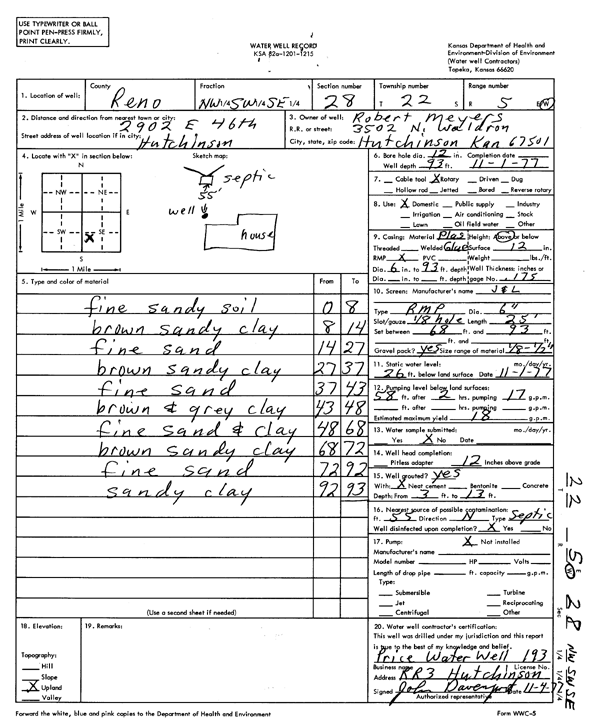 USE TYPEWRITER OR BALL
POINT PEN-PRESS FIRMLY,
PRINT CLEARLY.
WATER WELL RECORD
KSA 82a-1201-1215
Kansas Department of Health and
Environment-Division of Environment
(Water well Contractors)
Topeka, Kansas 66620
1. Location of well:
County
Reno
Fraction
NW 1/4 SW 1/4 SE 1/4
Section number
28
Township number
T 22 S
Range number
R 5 E/W
2. Distance and direction from nearest town or city:
2902 E 46th
Street address of well location if in city:
Hutchinson
3. Owner of well: Robert Meyers
R.R. or street: 3502 N. Waldron
City, state, zip code: Hutchinson Kan 67501
4. Locate with "X" in section below:
Sketch map:
N
NW NE
W E
SW SE
X
S
1 Mile
1 Mile
septic
55'
well
house
5. Type and color of material
From To
fine sandy soil 0 8
brown sandy clay 8 14
fine sand 14 27
brown sandy clay 27 37
fine sand 37 43
brown & grey clay 43 48
fine sand & clay 48 68
brown sandy clay 68 72
fine sand 72 92
sandy clay 92 93
(Use a second sheet if needed)
6. Bore hole dia. 12 in. Completion date
Well depth 93 ft. 11-1-77
7. Cable tool X Rotary Driven Dug
Hollow rod Jetted Bored Reverse rotary
8. Use: X Domestic Public supply Industry
Irrigation Air conditioning Stock
Lawn Oil field water Other
9. Casing: Material Plas Height: Above or below
Threaded Welded Glue Surface 12 in.
RMP X PVC Weight lbs./ft.
Dia. 6 in. to 93 ft. depth Wall Thickness: inches or
Dia. in. to ft. depth gage No. .175
10. Screen: Manufacturer's name J & L
Type RMP Dia. 6"
Slot/gauze 1/8 hole Length 25'
Set between 68 ft. and 93 ft.
ft. and ft.
Gravel pack? yes Size range of material 1/8-1/2"
11. Static water level: mo./day/yr.
26 ft. below land surface Date 11-1-77
12. Pumping level below land surfaces:
58 ft. after 2 hrs. pumping 17 g.p.m.
ft. after hrs. pumping g.p.m.
Estimated maximum yield 18 g.p.m.
13. Water sample submitted: mo./day/yr.
Yes X No Date
14. Well head completion:
Pitless adapter 12 Inches above grade
15. Well grouted? yes
With: X Neat cement Bentonite Concrete
Depth: From 3 ft. to 13 ft.
16. Nearest source of possible contamination:
ft. 55 Direction N Type Septic
Well disinfected upon completion? X Yes No
17. Pump: X Not installed
Manufacturer's name
Model number HP Volts
Length of drop pipe ft. capacity g.p.m.
Type:
Submersible Turbine
Jet Reciprocating
Centrifugal Other
18. Elevation:
Topography:
Hill
Slope
X Upland
Valley
19. Remarks:
20. Water well contractor's certification:
This well was drilled under my jurisdiction and this report
is true to the best of my knowledge and belief.
Price Water Well 193
Business name License No.
Address RR3 Hutchinson
Signed John Davenport Date 11-4-77
Authorized representative
T R E W Sec 1/4 1/4 1/4
22 - 5 28 NW SW SE
Forward the white, blue and pink copies to the Department of Health and Environment
Form WWC-5